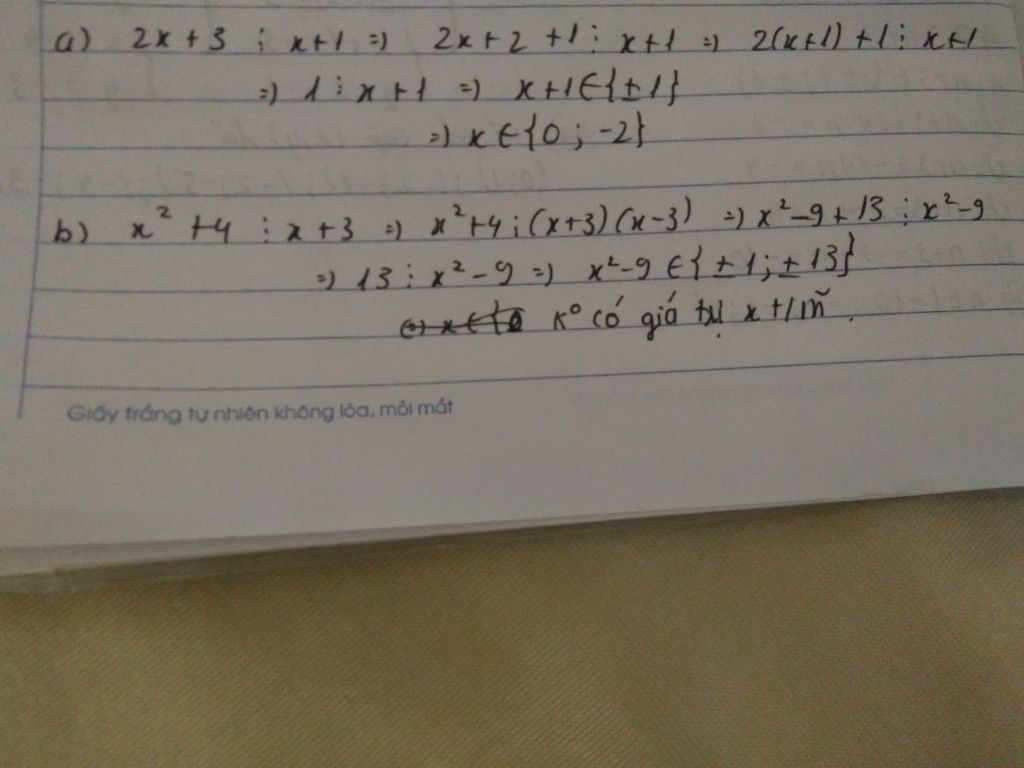 a) 2x + 3 ⋮ x+1 => 2x + 2 + 1 ⋮ x+1 => 2(x+1) + 1 ⋮ x+1
=> 1 ⋮ x + 1 => x+1 ∈ {±1}
=> x ∈ {0 ; -2}
b) x² + 4 ⋮ x + 3 => x² + 4 ⋮ (x+3)(x-3) => x² - 9 + 13 ⋮ x² - 9
=> 13 ⋮ x² - 9 => x² - 9 ∈ {±1 ; ±13}
K° có giá trị x t/mãn.
Giấy trắng tự nhiên không lóa, mỏi mắt